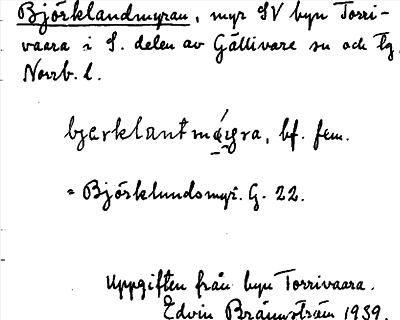 Björklandmyran, myr SV byn Torri-
vaara i S. delen av Gällivare sn och tg,
Norrb. l.
bjærklantmyra, bf. fem.
= Björklundsmyr. G. 22.
Uppgiften från byn Torrivaara.
Edvin Brännström 1939.